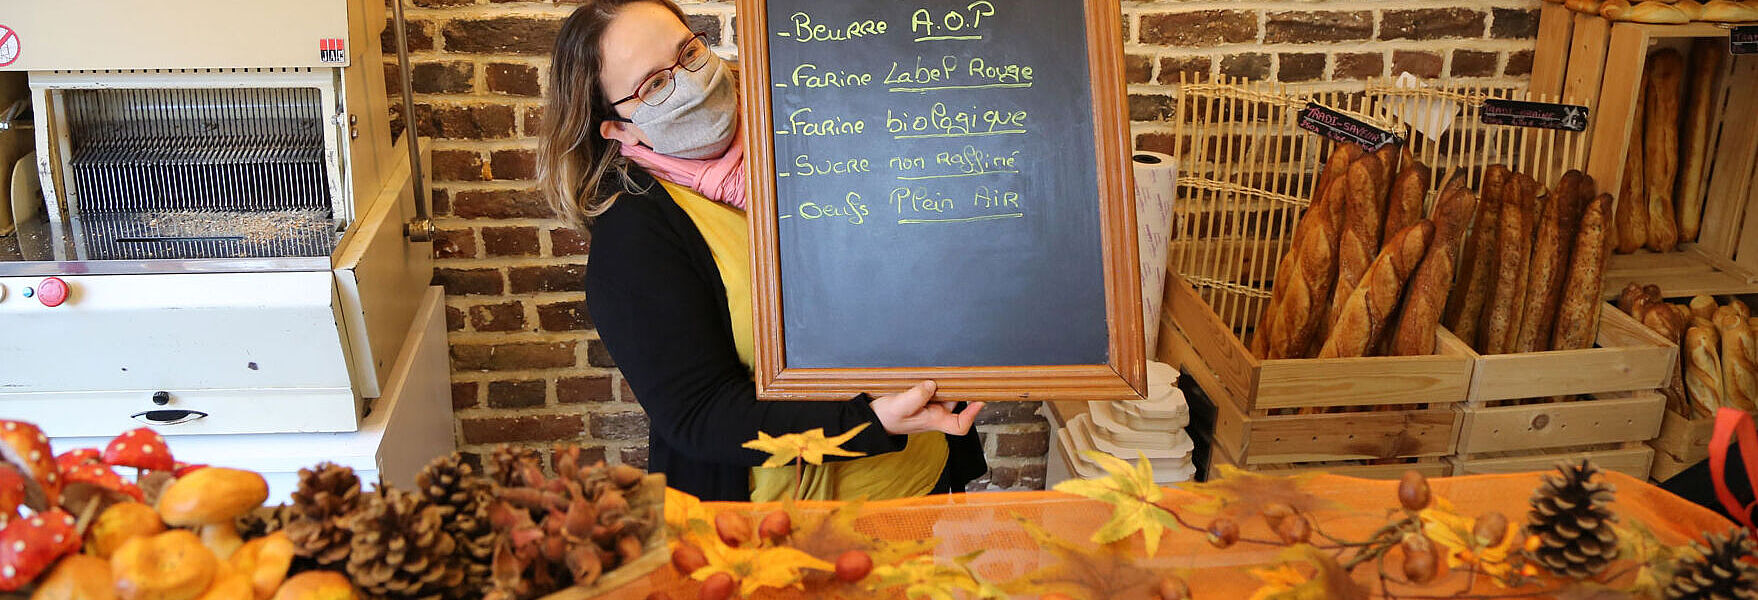 JAC
-Beurre A.O.P
-Farine Label Rouge
-Farine biologique
-Sucre non raffiné
-Oeufs Plein AIR
TRADI-SAVEUR
TRADI-GRAINE